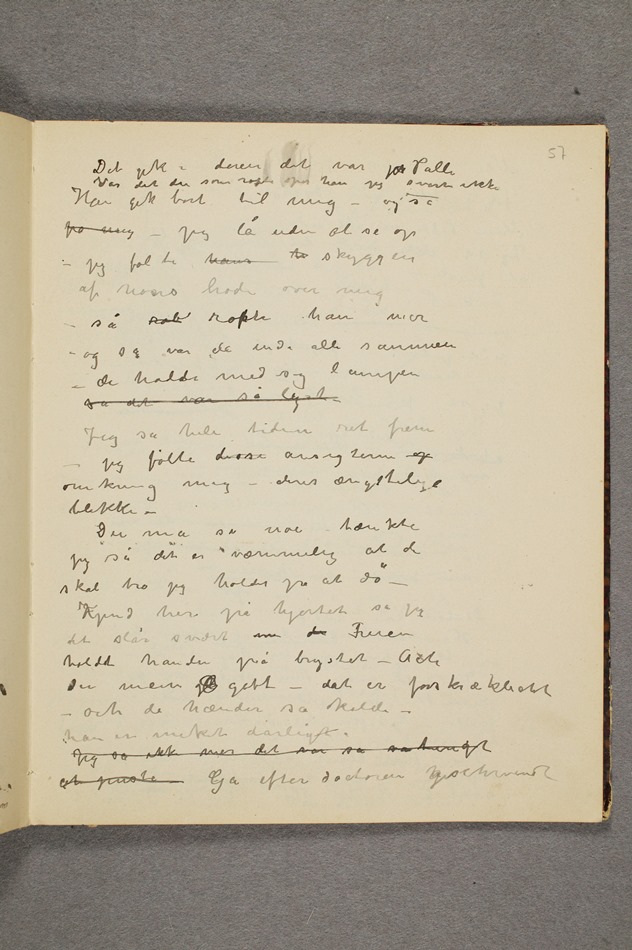 57
Det gik i døren det var Palle
Var det du som ropte op han jeg svarte ikke
Han gik bort til mig – og så
på mig – jeg lå uden at se op
– jeg følte hans skyggen
af hans hode over mig
– så ropte han mer
– og så var de inde alle sammen
– de holdt med sig lampen
så det var så lyst –
Jeg så hele tiden ret frem
– jeg følte disse ansigterne og
omkring mig – deres ængstelige
blikke –
Du må se noe tænkte
jeg så det er væmmelig at de
skal tro jeg holdt på at dø –
Kjend her på hjertet sa jeg
det slår svært Fruen
holdt handen på brystet – Ach
du mein gott – det er forskrækkeligt
– och de hænder så kolde –
han er meket dårligt.
Jeg sa ikke mer det var så tungt
at puste Gå efter doctoren geschwindt